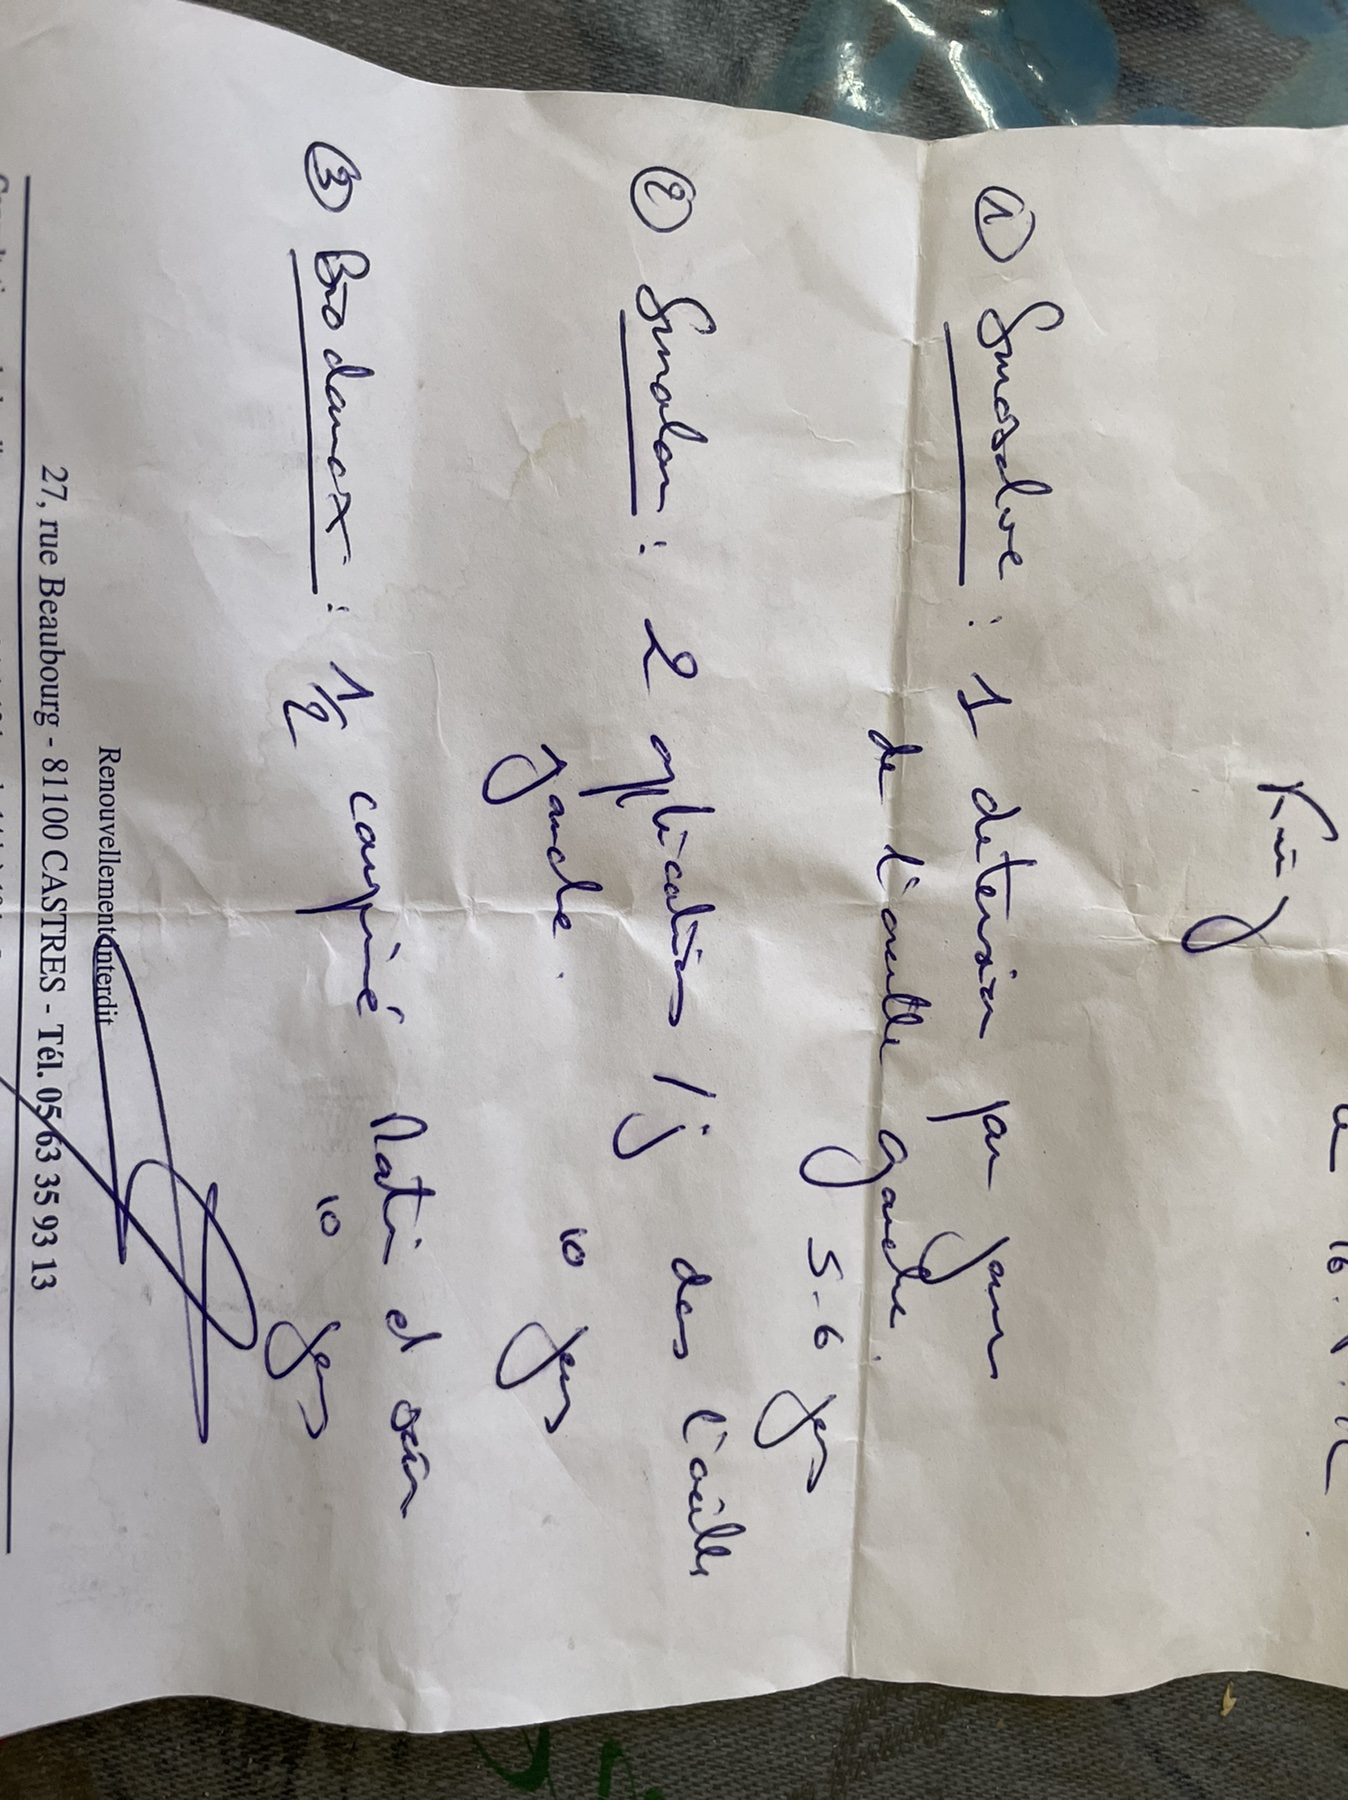 King
① Surosolve : 1 détersion par jour
de l'oreille gauche.
5-6 jours
② Surolan : 2 applications / j dans l'oreille
gauche. 10 jours
③ : 1/2 comprimé Matin et soir
10 jours
Renouvellement interdit
27, rue Beaubourg - 81100 CASTRES - Tél. 05 63 35 93 13